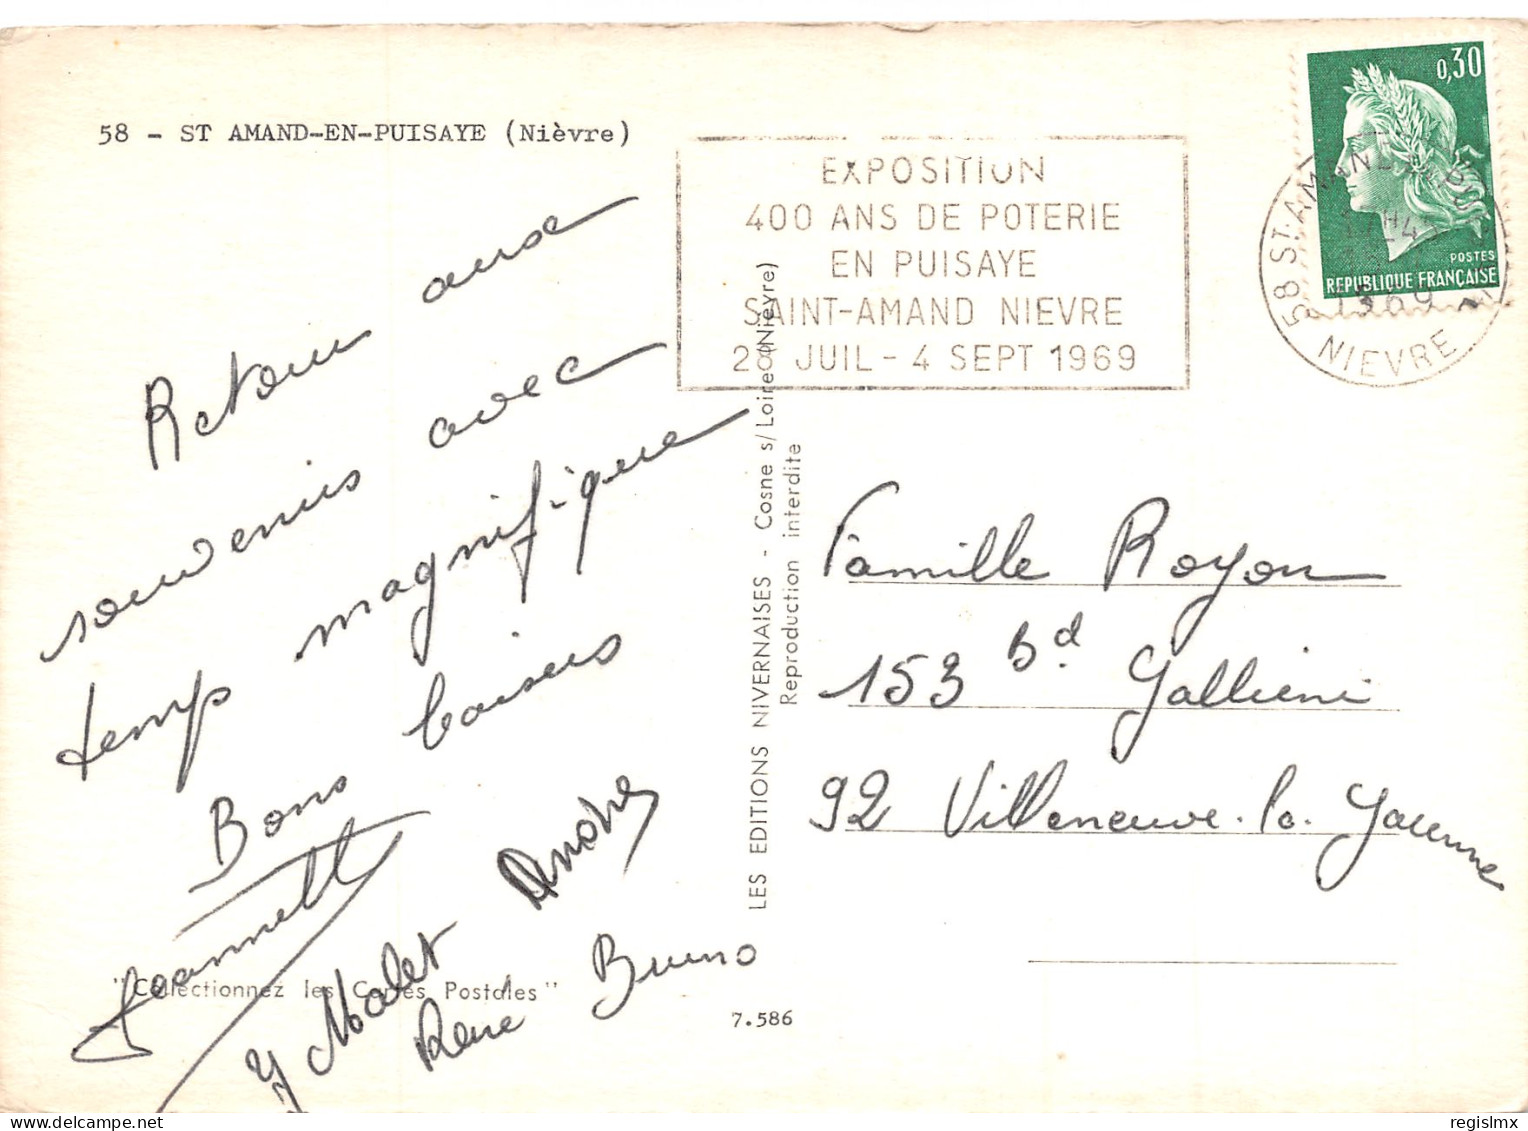 58 - ST AMAND-EN-PUISAYE (Nièvre)
Retour aux
souvenirs avec
temps magnifique
Bons baisers
Jeannette
André
Y Malet
René Bruno
"Collectionnez les Cartes Postales"
7.586
LES EDITIONS NIVERNAISES - Cosne s/Loire (Nièvre)
Reproduction interdite
EXPOSITION
400 ANS DE POTERIE
EN PUISAYE
SAINT-AMAND NIEVRE
28 JUIL - 4 SEPT 1969
0,30
POSTES
REPUBLIQUE FRANÇAISE
58 ST. AMAND
1969
NIEVRE
Famille Royon
153 Bd. Gallieni
92 Villeneuve-la-Garenne
regislmx